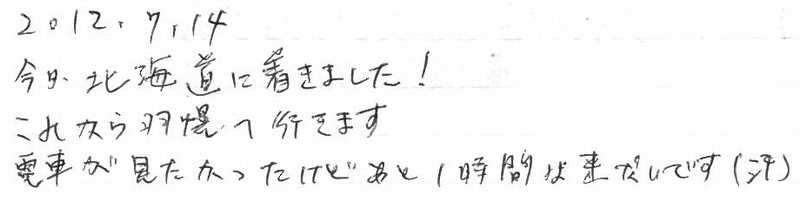 2012.7.14
今日、北海道に着きました!
これから羽幌へ行きます
電車が見たかったけどあと1時間は来ないです(汗)